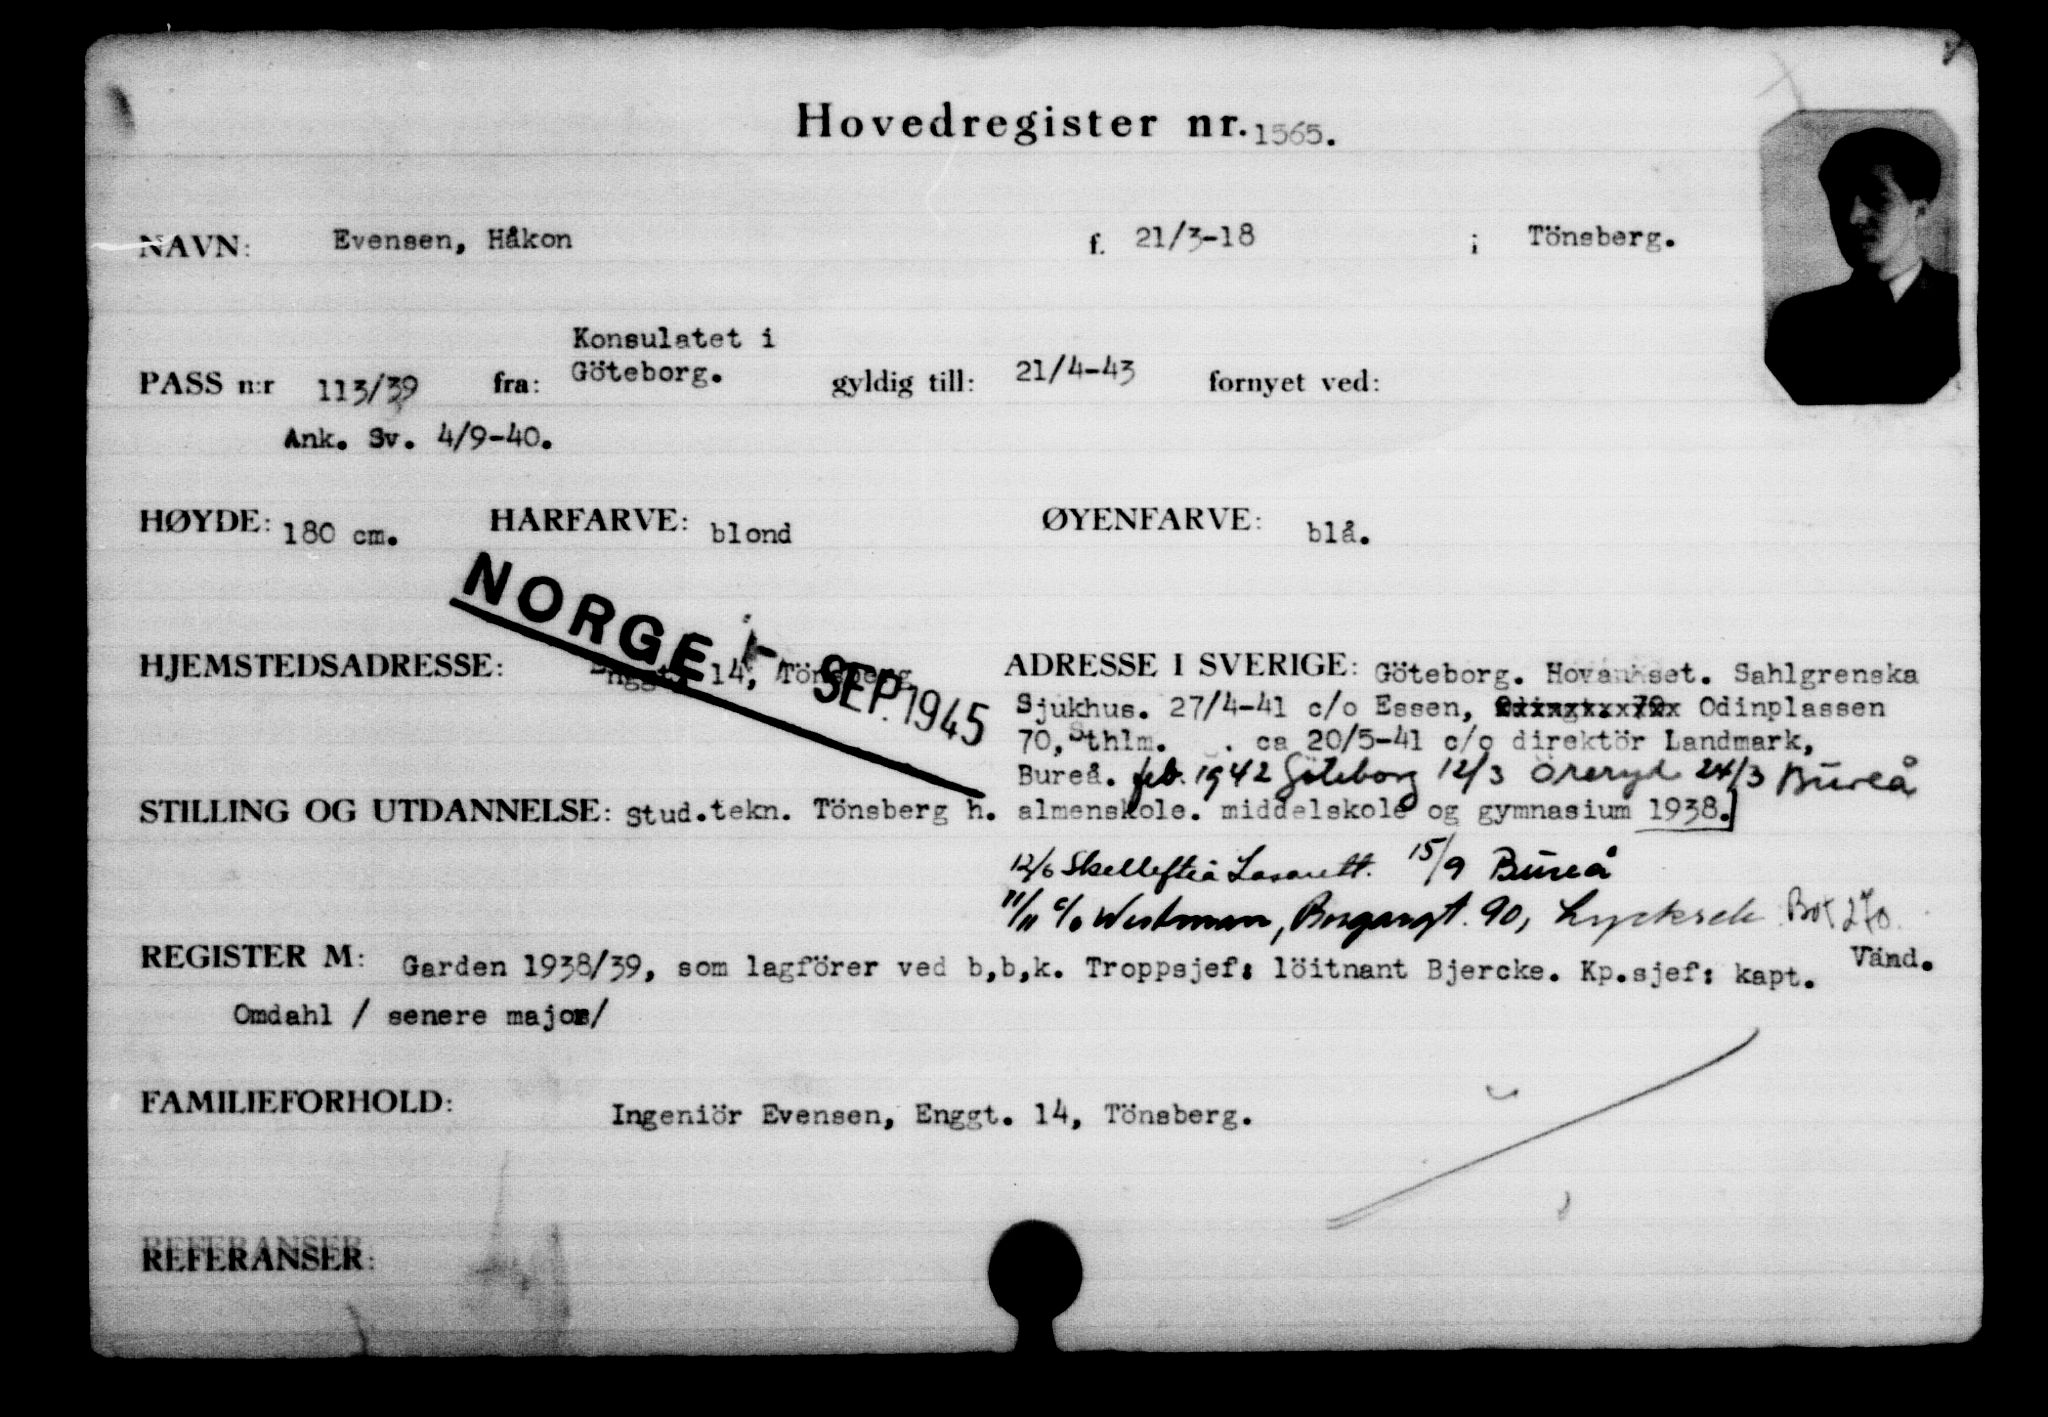 Hovedregister nr. 1565.
NAVN: Evensen, Håkon f. 21/3-18 i Tönsberg.
Konsulatet i
PASS n:r 113/39 fra: Göteborg. gyldig till: 21/4-43 fornyet ved:
Ank. Sv. 4/9-40.
HØYDE: 180 cm. HARFARVE: blond ØYENFARVE: blå.
NORGE SEP. 1945
HJEMSTEDSADRESSE: 14, Tönsberg ADRESSE I SVERIGE: Göteborg. Sahlgrenska
Sjukhus. 27/4-41 c/o Essen, Odinplassen
70, Sthlm. . ca 20/5-41 c/o direktör Landmark,
Bureå. feb. 1942 Göteborg 12/3 Öreryd 24/3 Bureå
STILLING OG UTDANNELSE: Stud.tekn. Tönsberg h. almenskole. middelskole og gymnasium 1938.
12/6 Skellefteå Lasarett. 15/9 Bureå
11/11 c/o Westman, 90, Lycksele Box 270.
Vänd.
REGISTER M: Garden 1938/39, som lagförer ved b,b,k. Troppsjef: löitnant Bjercke. Kp.sjef: kapt.
Omdahl / senere major/
FAMILIEFORHOLD: Ingeniör Evensen, Enggt. 14, Tönsberg.
REFERANSER: